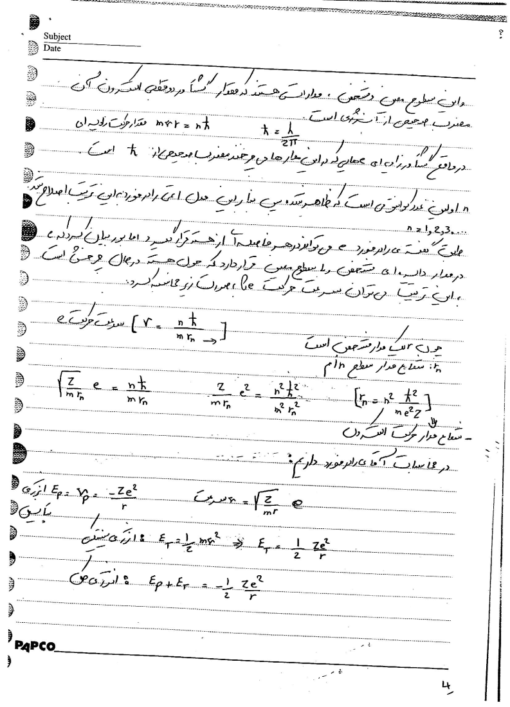 Subject
Date
و این سطوح معین و مشخص ، مداراتی هستند که مقدار گشتاور دورانی الکترون آن
مضرب صحیحی از است.
mvr = nħ ħ = h/2π
در واقع گشتاور زاویه ای که در این مدارها می چرخند مضرب صحیحی از ħ است.
n اولین عدد کوانتومی است که ظاهر شد پس بنابراین مدل اتمی رادرفورد به این ترتیب اصلاح شد
n=1,2,3,...
طبق گفته ی رادرفورد e می تواند در هر فاصله از هسته قرار گیرد اما بور بیان کرد که e
در مدار دایره ای مشخص با سطح معین قرار دارد که حول هسته در حال چرخش است
به این ترتیب می توان سرعت حرکت e را بصورت زیر محاسبه کرد:
سرعت حرکت e [v = nħ/mrₙ →]
چون مدار مشخص است
rₙ: شعاع مدار سطح nام
√(Z/mrₙ) e = nħ/mrₙ Z/mrₙ e² = n²ħ²/m²rₙ² [rₙ = n² ħ²/me²Z]
- شعاع مدار حرکت الکترون
در محاسبات آقای رادرفورد داریم:
انرژی پتانسیل Eₚ = Vₚ = -Ze²/r سرعت v = √(Z/mr) e
انرژی جنبشی : E_T = 1/2 mv² ⇒ E_T = 1/2 Ze²/r
انرژی کل : Eₚ + E_T = -1/2 Ze²/r
PAPCO
4